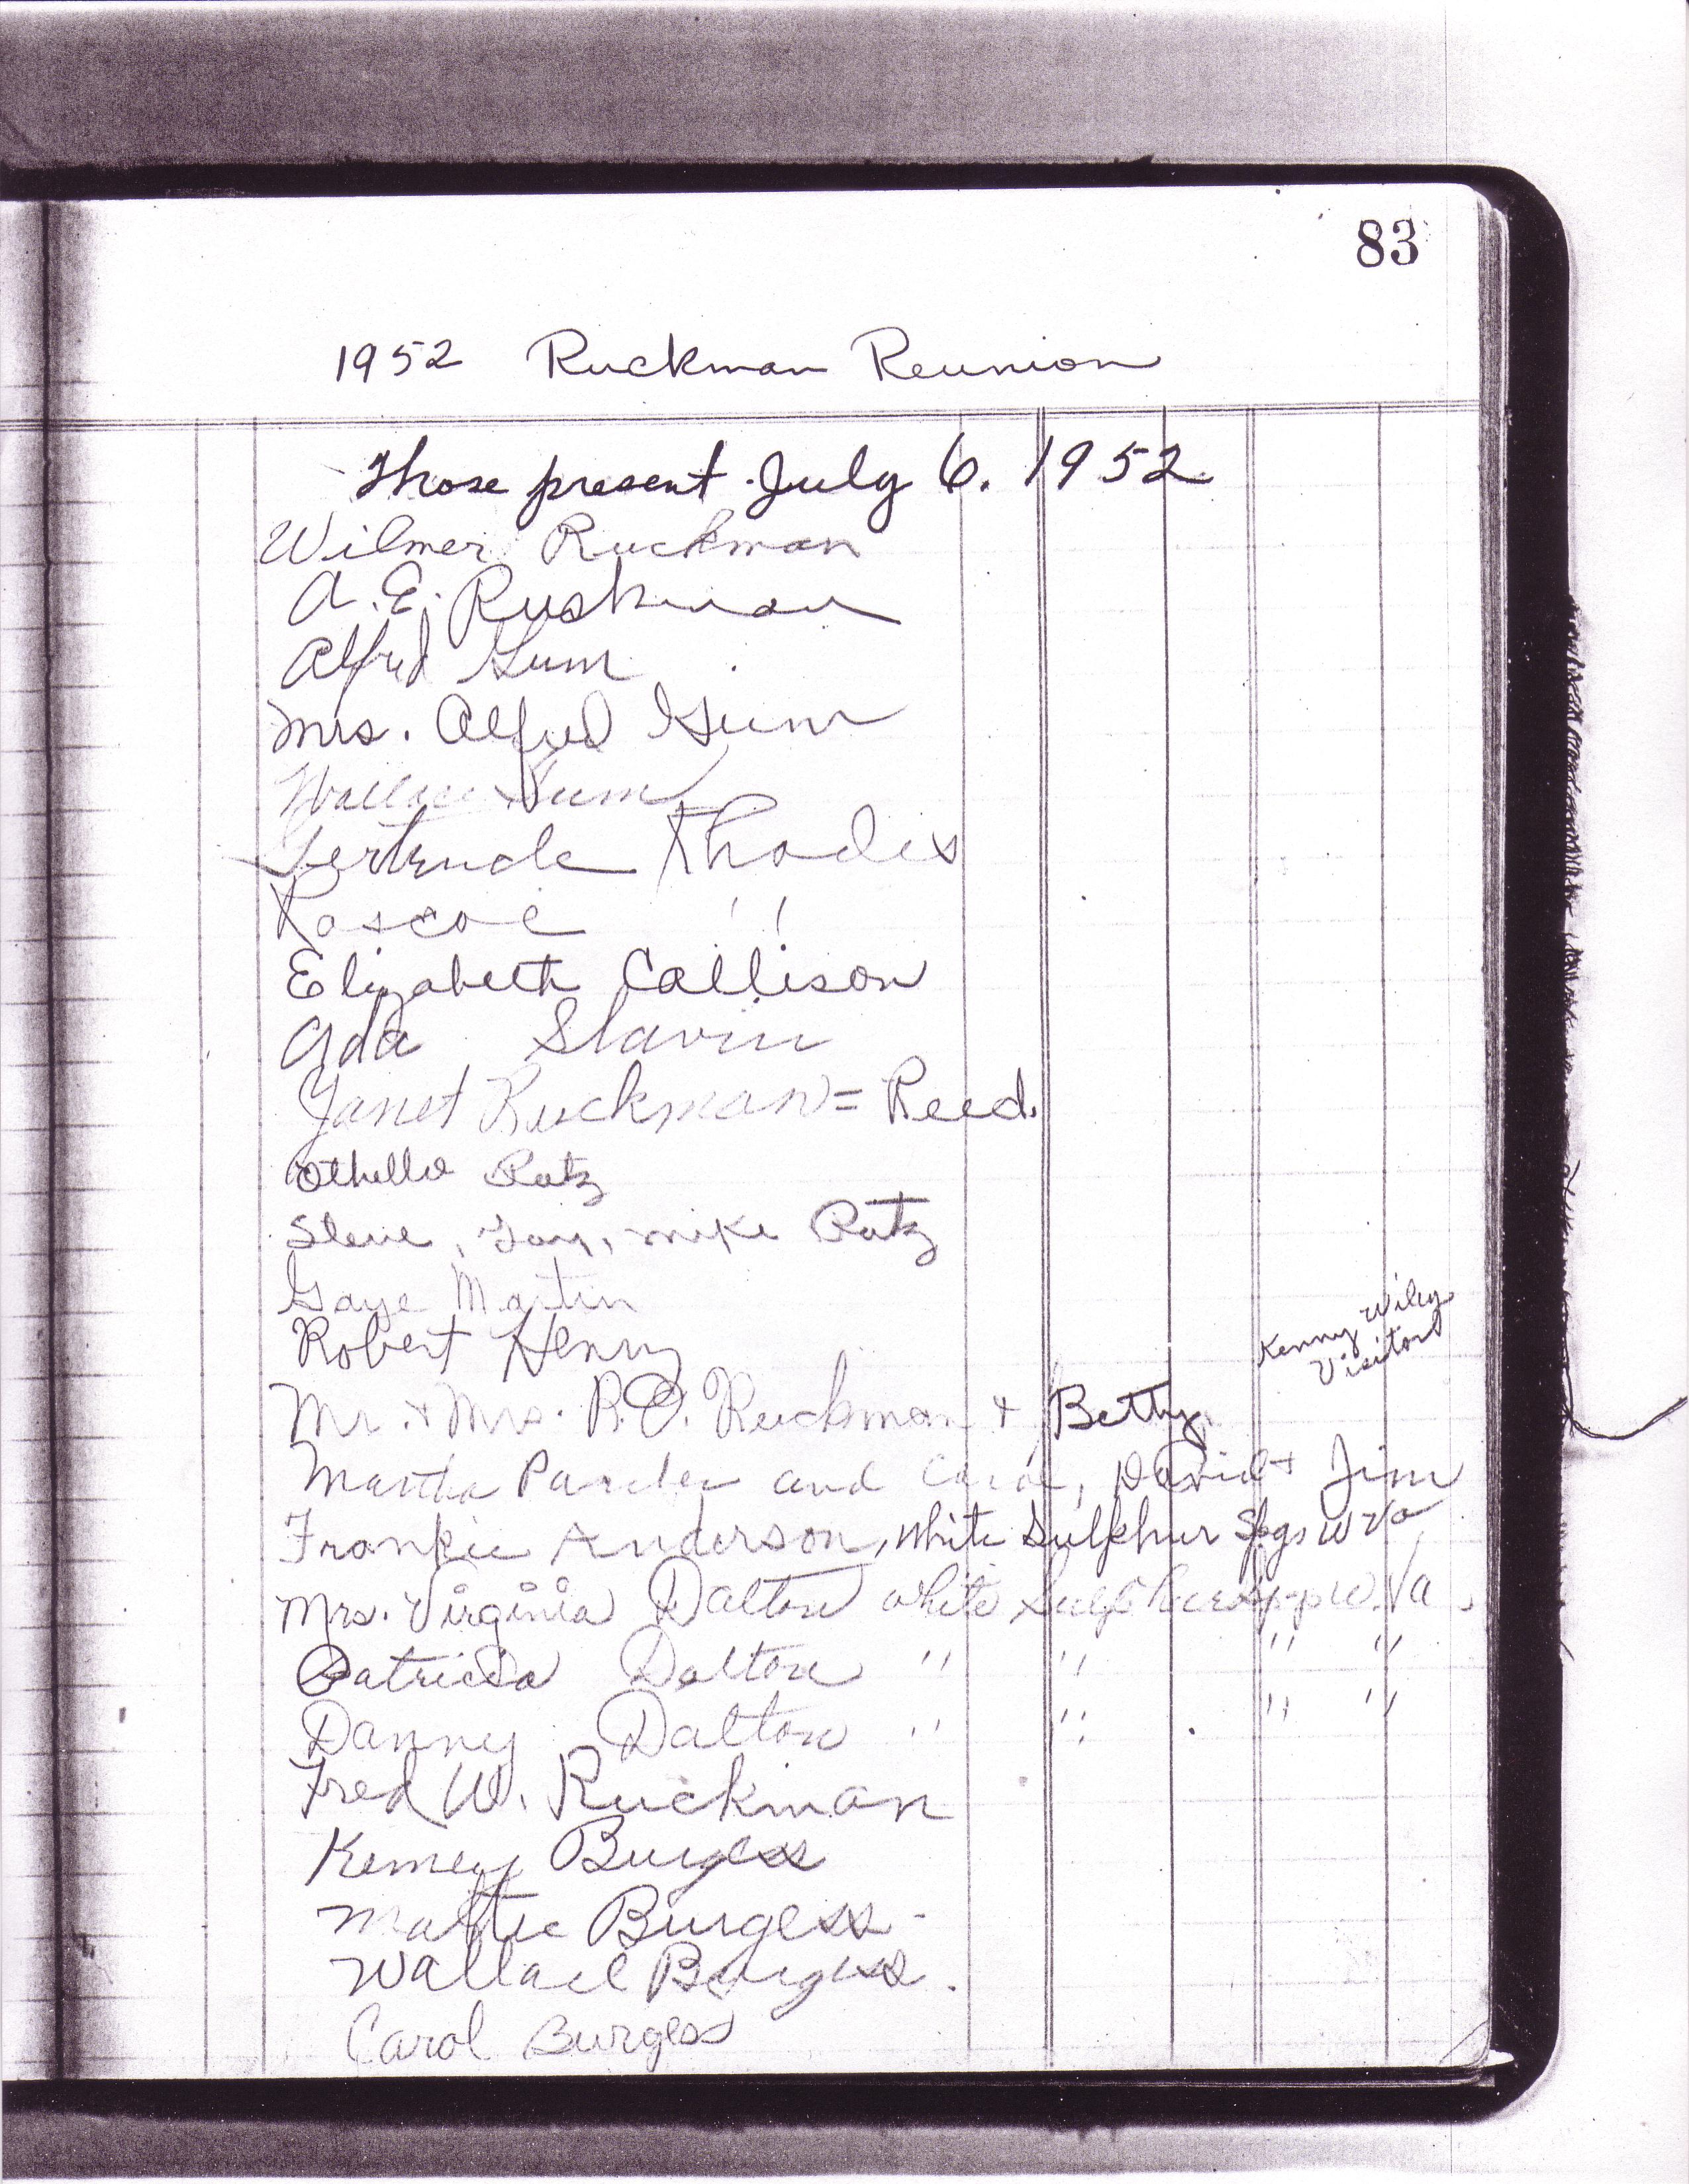 83
1952 Ruckman Reunion
Those present July 6. 1952.
Wilmer Ruckman
A. E. Ruckman
Alfred Gum
Mrs. Alfred Gum
Wallace Gum
Gertrude Rhodes
Roscoe "
Elizabeth Callison
Ada Slavin
Janet Ruckman = Reed.
Othello Ratz
Steve, , Mike Ratz
Gaye Martin
Robert Henry
Kenny Wiley
Visitor
Mr. & Mrs. R.O. Ruckman & Betty
Martha and Carol, David & Jim
Frankie Anderson, White Sulphur Spgs W Va
Mrs. Virginia Dalton White Sulphur W. Va.
Patricia Dalton " " " "
Danny Dalton " " " "
Fred W. Ruckman
Burgess
Mattie Burgess
Wallace Burgess.
Carol Burgess